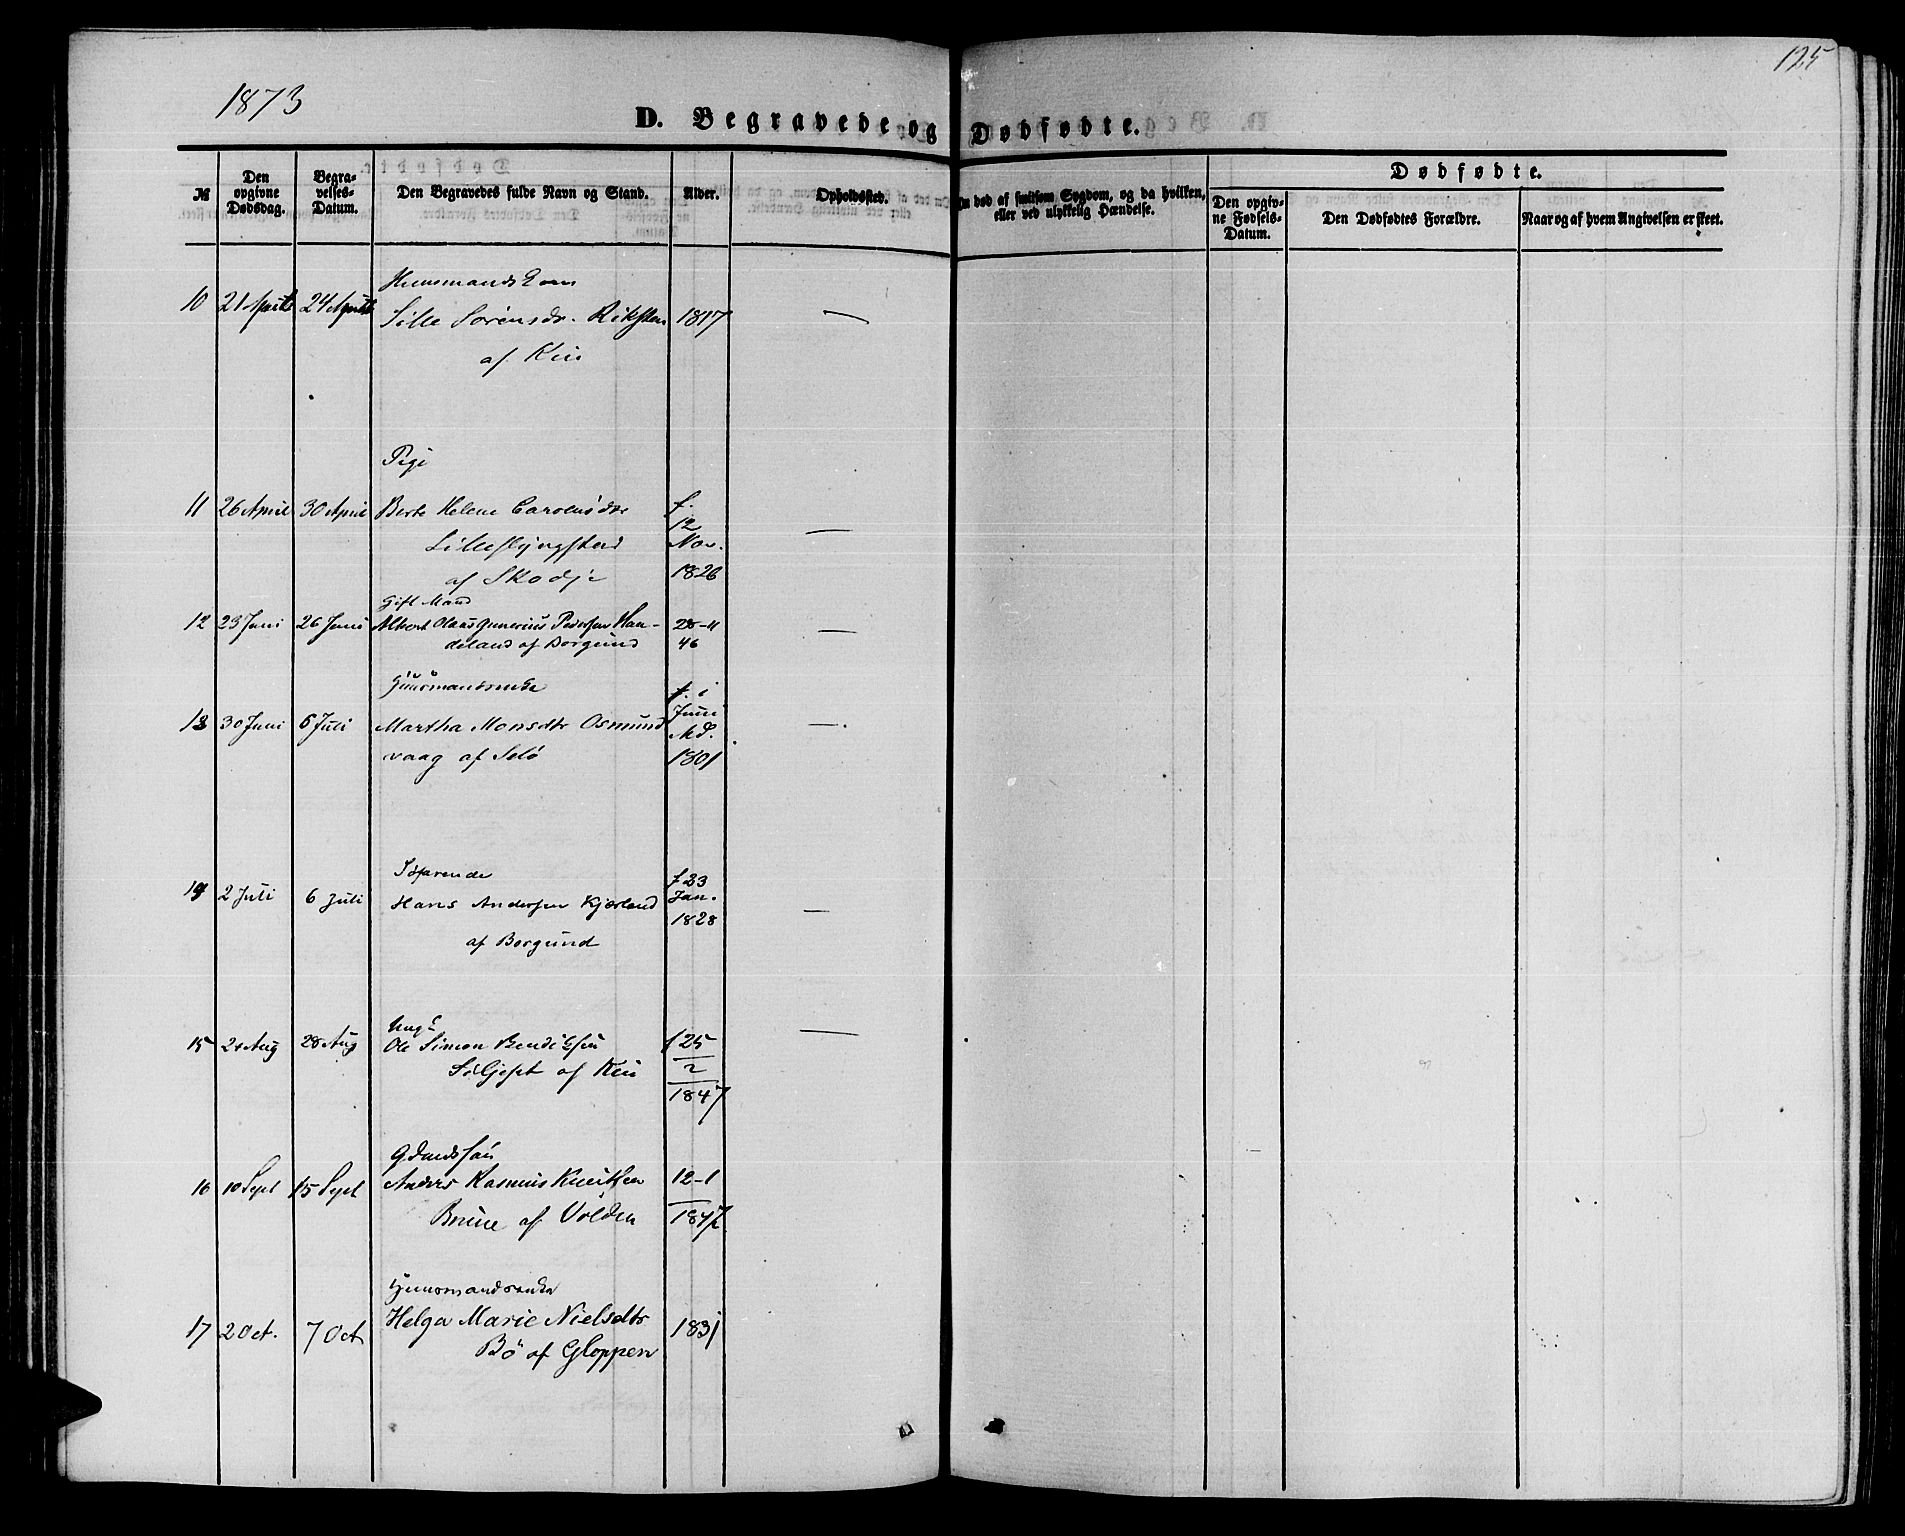 125
1873
D. Begravede og Dødfødte.
№
Den opgivne Dødsdag.
Begravelses-Datum.
Den Begravedes fulde Navn og Stand.
Alder.
Opholdssted.
Om død af smitsom Sygdom, og da hvilken, eller ved ulykkelig Hændelse.
Dødfødte.
Den opgivne Fødsels-Datum.
Den Dødfødtes Forældre.
Naar og af hvem Angivelsen er skeet.
10 21 April 24 April
Sille Sørensdr. 1817 —
af
Pige
11 26 April 30 April Berte Helene f. 12 Nov. 1826 —
af Skodje
Gift Mand
12 23 Juni 26 Juni Albert Olaus Gunerius Pedersen Han- 28-11 46 —
deland af Borgund
Huusmandsenke
13 30 Juni 6 Juli Martha Monsdtr Osmund f. i Juni Md. 1801 —
vaag af Selø
Søfarende
14 2 Juli 6 Juli Hans Andersen Kjærland f 23 Jan. 1828 —
af Borgund
Ungk
15 Aug 28 Aug Ole Simon Bendiksen f 25 2 1847 —
af
Gdmdssøn
16 10 Sept 15 Sept Anders Rasmus Knutsen 12-1
Brune af Volden
Huusmandsenke
17 2 Oct. 7 Oct Helga Marie Nielsdtr 1831
Bø af Gloppen